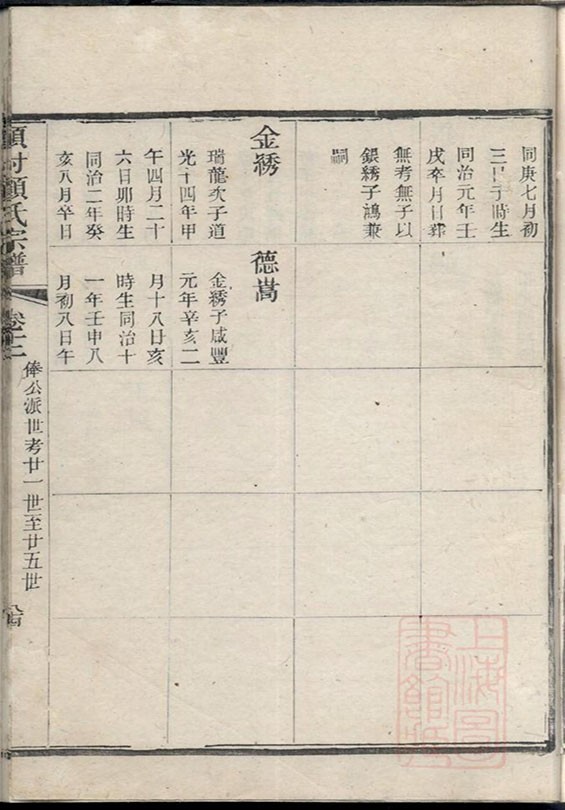 同庚七月初
三日子時生
同治元年壬
戌卒月日葬
無考無子以
銀綉子鴻兼
嗣
金綉
瑞龍次子道
光十四年甲
午四月二十
六日卯時生
同治二年癸
亥八月辛日
德嵩
金綉子咸豐
元年辛亥二
月十八日亥
時生同治十
一年壬申八
月初八日午
顧氏宗譜
卷十二
俸公派世考廿一世至廿五世
上海圖
書館藏